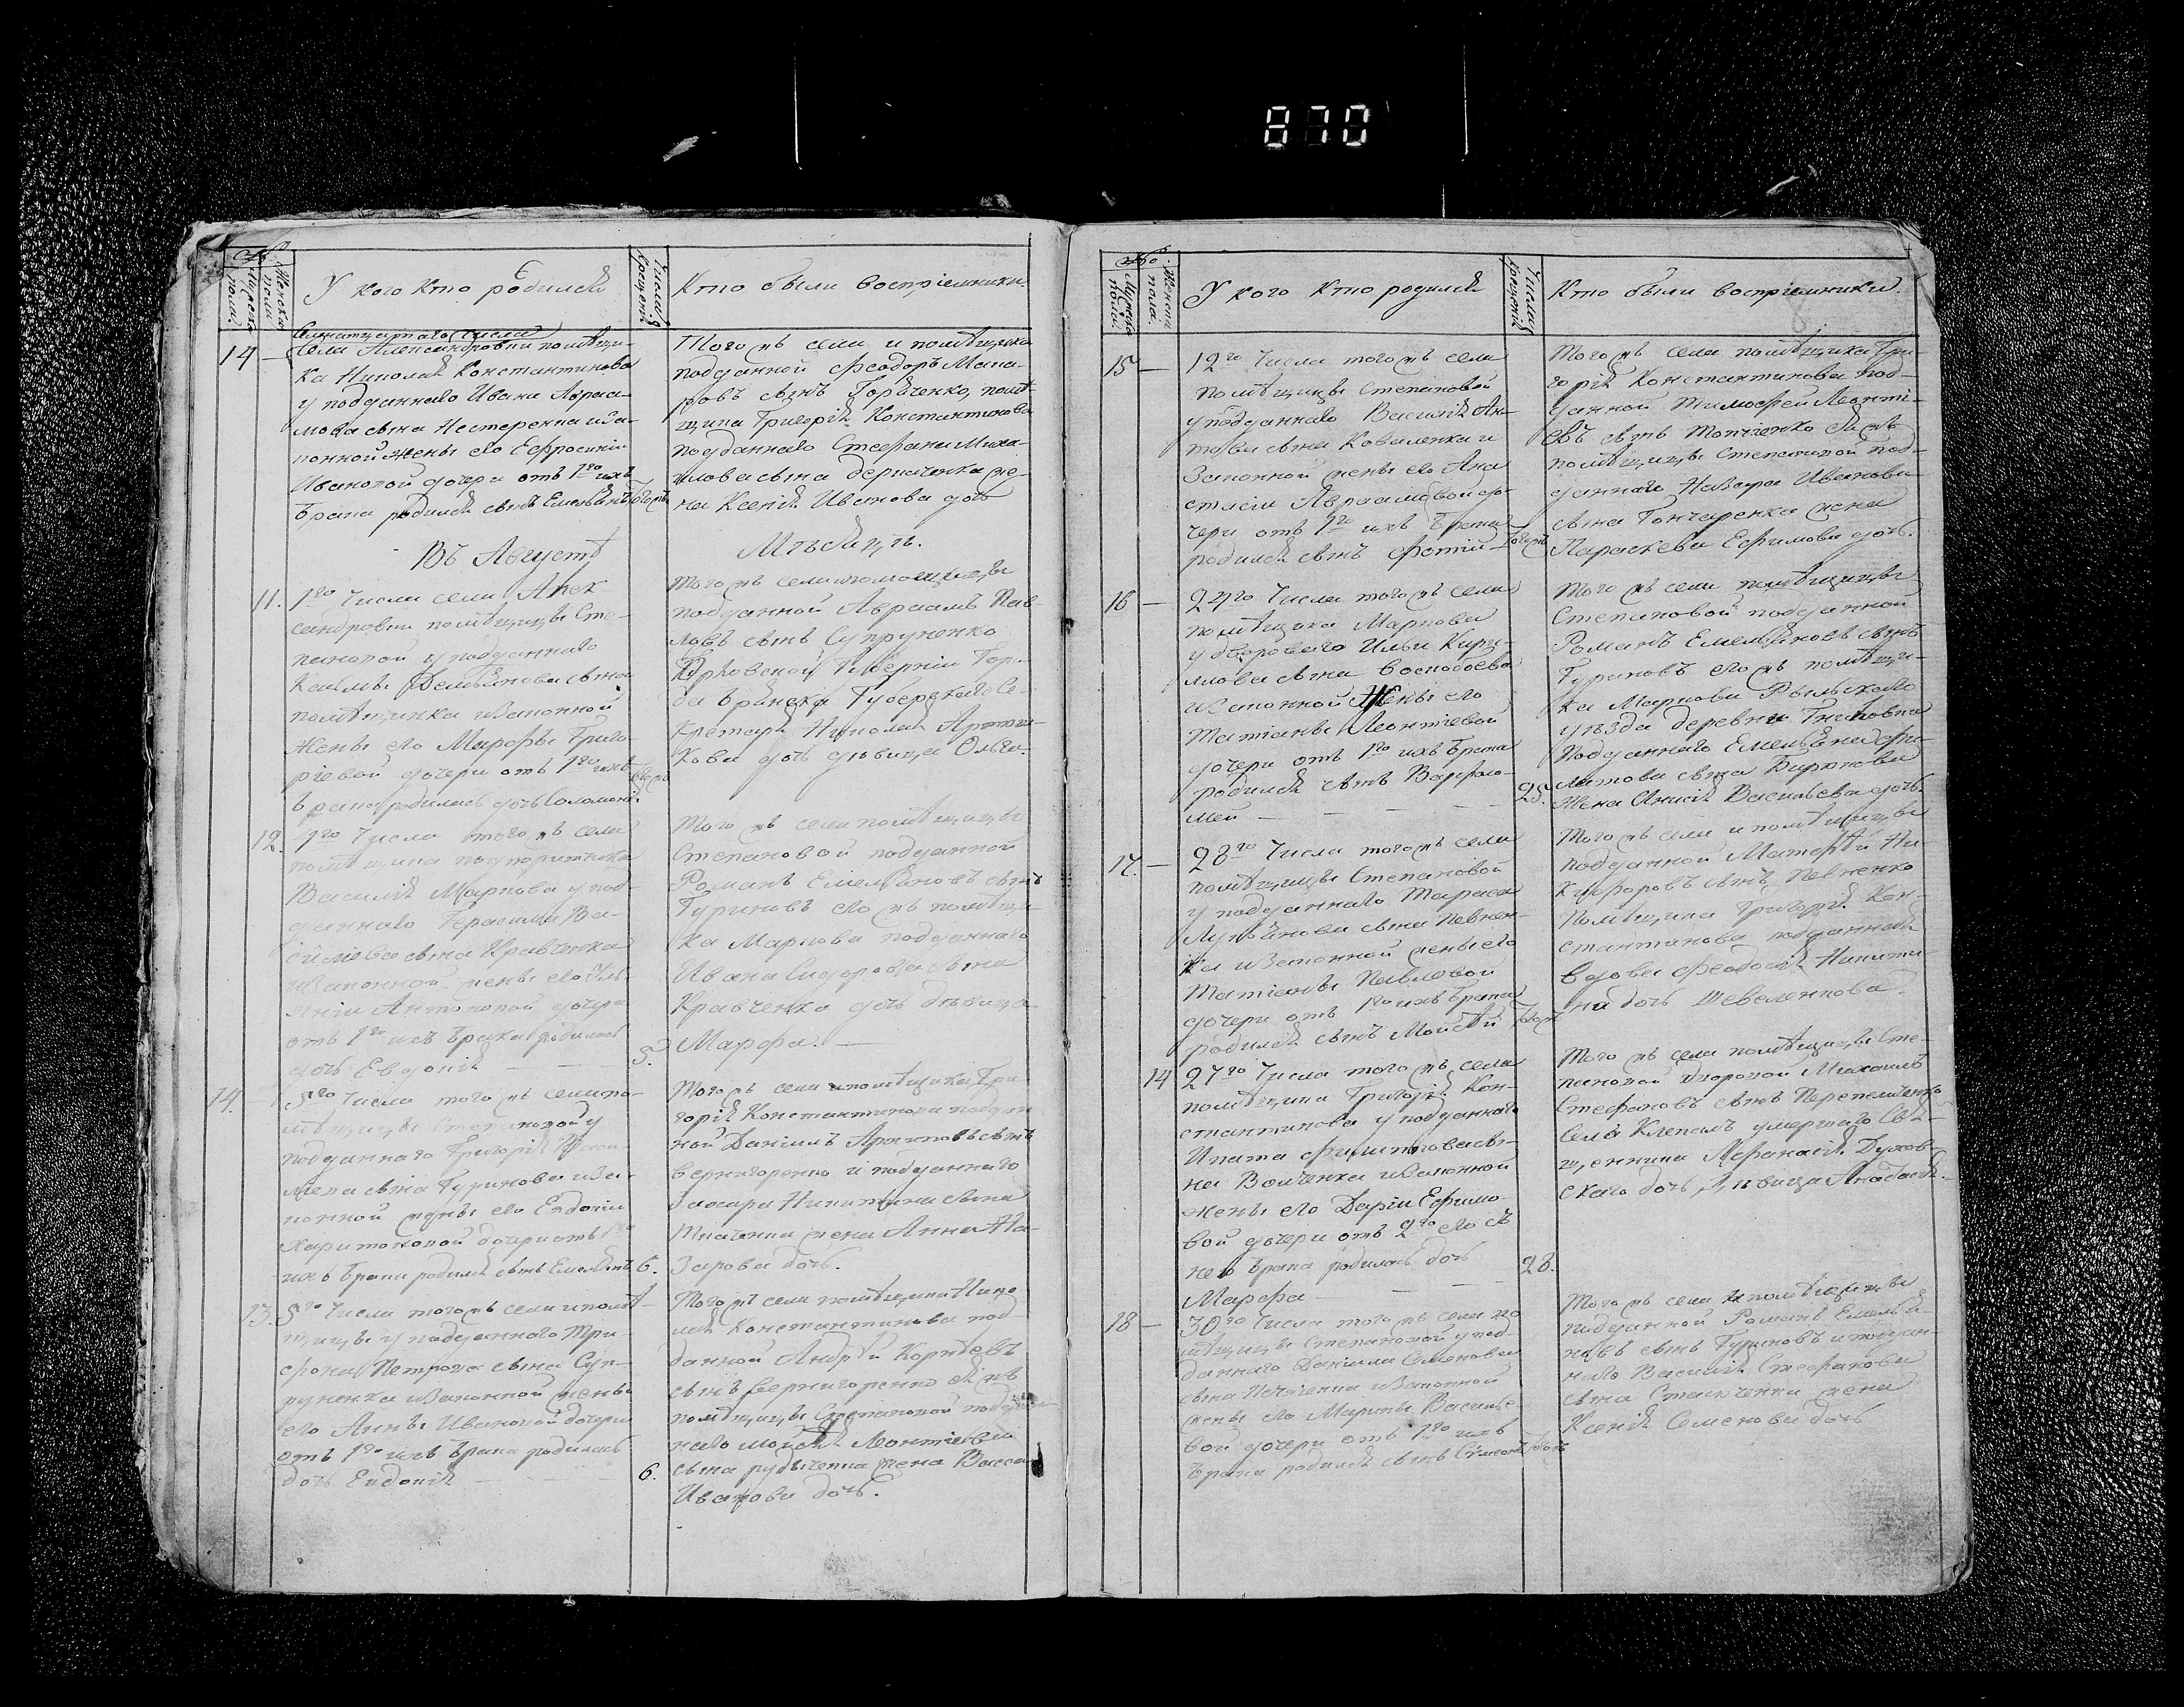 870
№
Мужеска пола.
Женска пола
У кого кто родился
Числа крещенія
Кто были воспріемники.
Семнатцатаго числа
14 —
села Александровки помѣщи-
ка Николая Константинова
у подданнаго Ивана Авраа-
мова сына Нестеренка и за-
конной жены его Ефросиніи
Ивановой дочери отъ 1го ихъ
брака родился сынъ Емельянъ
Того жъ села и помѣщика
подданной Феодоръ Мака-
ровъ сынъ Горбченко, помѣ-
щика Григорія Константинова
подданнаго Стефана Миха-
илова сына Деркаченка же-
на Ксенія Иванова дочь
Въ Августѣ
Мѣсяцѣ.
11.
1го Числа села Алек-
сандровки помѣщицы Сте-
пановой у подданнаго
Козьмы Демьянова сына
и законной
жены его Марфы Григо-
ріевой дочери отъ 1го ихъ
брака родилась дочь Соломонія
Того жъ села помещицы
подданной Авраамъ Пав-
ловъ сынъ Супруненко
Губерніи Горо-
да Губерскаго Се-
кретаря Николая
дочь дѣвица Ольга.
12.
1го Числа того жъ села
помѣщика подпоритчика
Василія Маркова у под-
даннаго Герасима Ва-
сильева сына Кравченка
и законной жены его Уль-
яніи Антоновой дочери
отъ 1го ихъ брака родилась
дочь Евдокія — — —
5.
Того жъ села помѣщицы
Степановой подданной
Романъ Емельяновъ сынъ
Гуриновъ его жъ помѣщи-
ка Маркова подданнаго
Ивана Сидорова сына
Кравченка дочь дѣвица
Марфа. —
14. —
5го Числа того жъ села по-
мѣщицы Степановой у
подданнаго Григорія
сына Гуринова и за-
конной жены его Евдокіи
Харитоновой дочери отъ 1го
ихъ брака родился сынъ Емельянъ
6.
Того жъ села и помѣщика Гри-
горія Константинова поддан-
ной Даніилъ Архиповъ сынъ
Вернигоренко и подданнаго
Захара Никитина сына
Ткаченка жена Анна На-
зарова дочь.
13.
5го Числа того жъ села и помѣ-
щицы у подданнаго Три-
фона Петрова сына Суп-
руненка и законной жены
его Анны Ивановой дочери
отъ 1го ихъ брака родилась
дочь Евдокія — — —
6.
Того жъ села помѣщика Нико-
лая Константинова под-
данной Андрѣй Корнѣевъ
сынъ Вернигоренко
помѣщицы Степановой поддан-
наго Мойсѣя Леонтіева
сына жена Васса
Иванова дочь.
№
Мужеска пола.
Женска пола.
У кого кто родился
Числа крещенія
Кто были воспріемники.
15 —
12го Числа того жъ села
помѣщицы Степановой
у подданнаго Василія Ан-
това сына Коваленка и
законной жены его Ана-
стасіи Авраамовой до-
чери отъ 1го ихъ брака
родился сынъ Фотій —
Того жъ села помѣщика Гри-
горія Константинова под-
данной Тимофей Леонті-
евъ сынъ
помѣщицы Степановой под-
даннаго Назара Иванова
сына Гончаренка жена
Параскева Ефимова дочь.
16 —
24го Числа того жъ села
помѣщика Маркова
у двороваго Ильи Кири-
лова сына Воскобоева
и законной жены его
Татіаны Леонтіевой
дочери отъ 1го ихъ брака
родился сынъ Варфоло-
мей — — —
25.
Того жъ села помѣщицы
Степановой подданной
Романъ Емельяновъ сынъ
Гуриновъ его жъ помѣщи-
ка Маркова Рыльскаго
уѣзда деревни
подданнаго Емельяна Фи-
латова сына Бирюкова
жена Анисія Васильева дочь.
17. —
28го Числа того жъ села
помѣщицы Степановой
у подданнаго Тараса
Лукьянова сына Певнен-
ка и законной жены его
Татіаны Павловой
дочери отъ 1го ихъ брака
родился сынъ Мойсѣй
Того жъ села и помѣщицы
подданной Матѳѣй Ни-
кифоровъ сынъ Певненко
Помѣщика Григорія Кон-
стантинова подданная
вдова Феодосія Никити-
на дочь Шевеленкова.
14
27го Числа того жъ села
помѣщика Григорія Кон-
стантинова у подданнаго
Ипата Филиппова сы-
на Волченка и законной
жены его Даріи Ефимо-
вой дочери отъ 2го его съ
нею брака родилась дочь
Марфа — — —
28.
Того жъ села помѣщицы Сте-
пановой дворовой Михаилъ
Стефановъ сынъ Перепеличенко
села Клепалъ умершаго Свя-
щенника Афанасія Духов-
скаго дочь дѣвица Анастасія.
18 —
30го Числа того жъ села по-
мѣщицы Степановой у под-
даннаго Даніила Семенова
сына и законной
жены его Марины Василье-
вой дочери отъ 1го ихъ
брака родился сынъ Сѵмеонъ
Того жъ села и помѣщицы
подданной Романъ Емелья-
новъ сынъ Гуриновъ и поддан-
наго Василія Стефанова
сына жена
Ксенія Семенова дочь